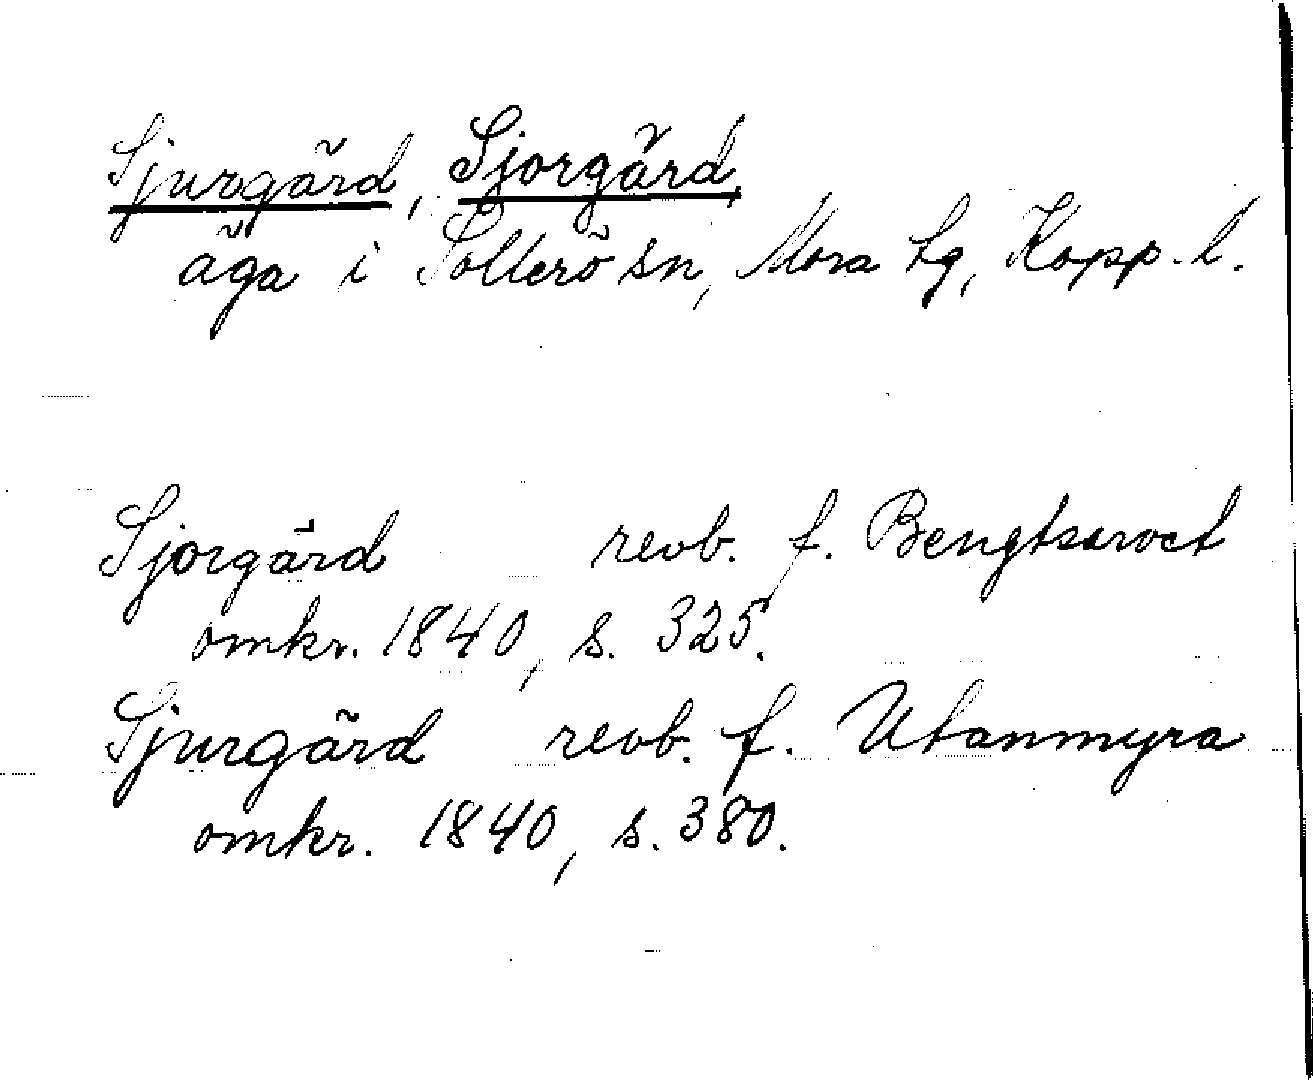 Sjurgård, Sjorgård,
äga i Sollerö sn, Mora tg, Kopp. l.
Sjorgård revb. f. Bengtsarvet
omkr. 1840, s. 325.
Sjurgård revb. f. Utanmyra
omkr. 1840, s. 380.